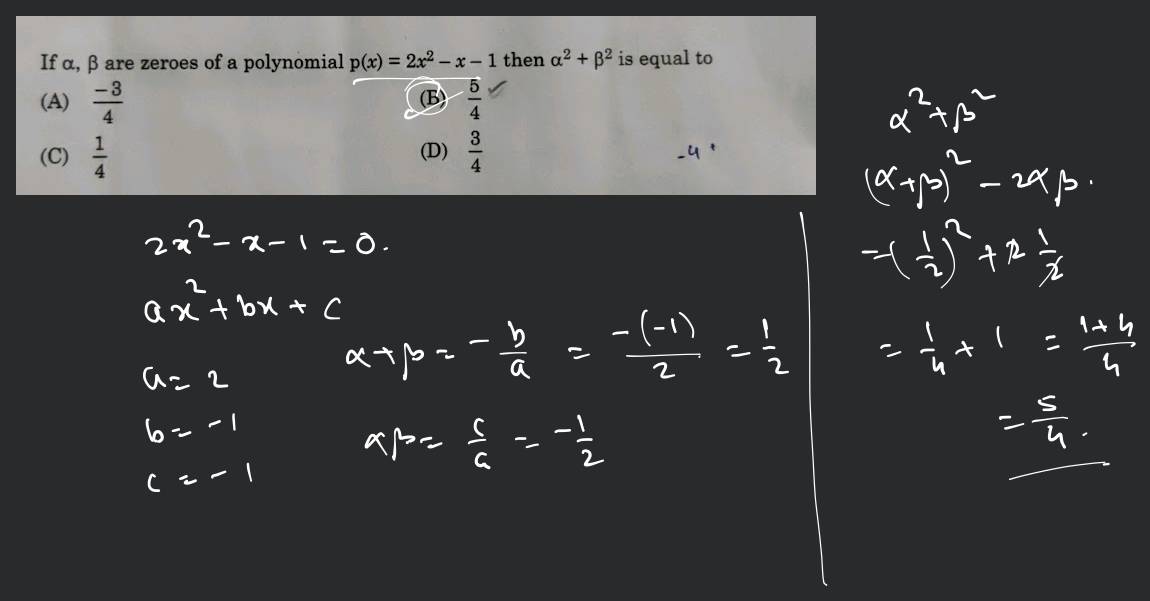 If α, β are zeroes of a polynomial p(x) = 2x² – x – 1 then α² + β² is equal to
(A) –3/4
(B) 5/4 ✓
(C) 1/4
(D) 3/4
-4
2x² - x - 1 = 0.
ax² + bx + c
a = 2
b = -1
c = -1
α+β = -b/a = -(-1)/2 = 1/2
αβ = c/a = -1/2
α² + β²
(α+β)² - 2αβ.
= (1/2)² + 2 1/2
= 1/4 + 1 = 1+4/4
= 5/4.